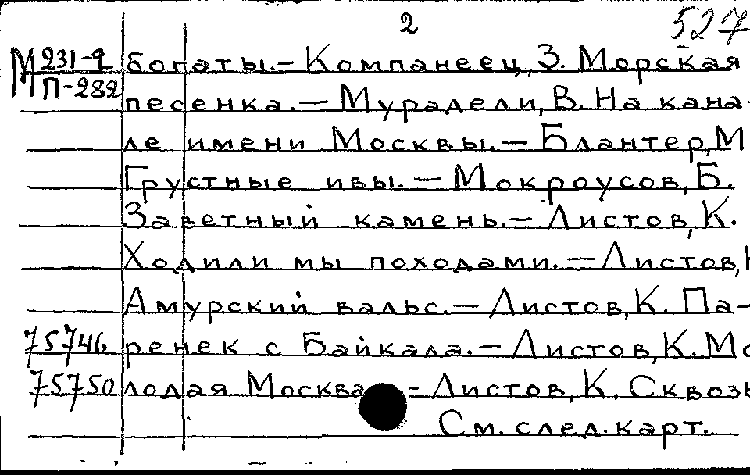 2 527
М 231-2 богаты.- Компанеец, З. Морская
П-282 песенка.- Мурадели, В. На кана-
ле имени Москвы.- Блантер, М
Грустные ивы.- Мокроусов, Б.
Заветный камень.- Листов, К.
Ходили мы походами.- Листов, К
Амурский вальс.- Листов, К. Па-
75746 ренек с Байкала.- Листов, К. Мо
75750 лодая Москва - Листов, К. Сквозь
См. след. карт.